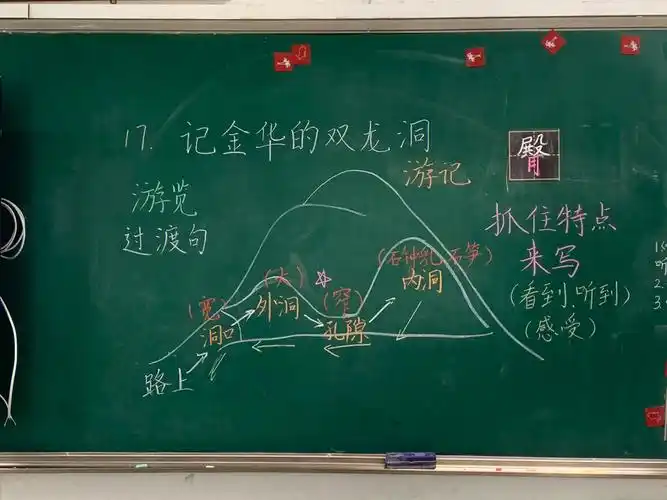 17. 记金华的双龙洞
臀
游记
游览
过渡句
抓住特点
来写
(看到、听到)
(感受)
(石钟乳、石笋)
(大)
(窄)
(宽)
内洞
外洞
孔隙
洞口
路上
1.
听
2.
3.